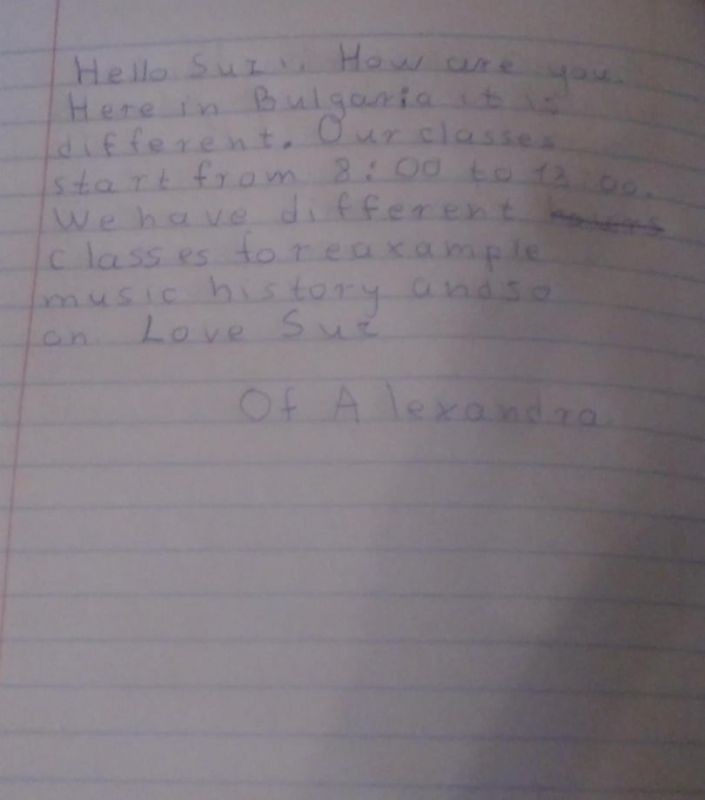 Hello Suz.. How are you.
Here in Bulgaria it is
different. Our classes
start from 8:00 to 13.00.
We have different
classes foreaxample
music history andso
on. Love Suz
Of Alexandra.